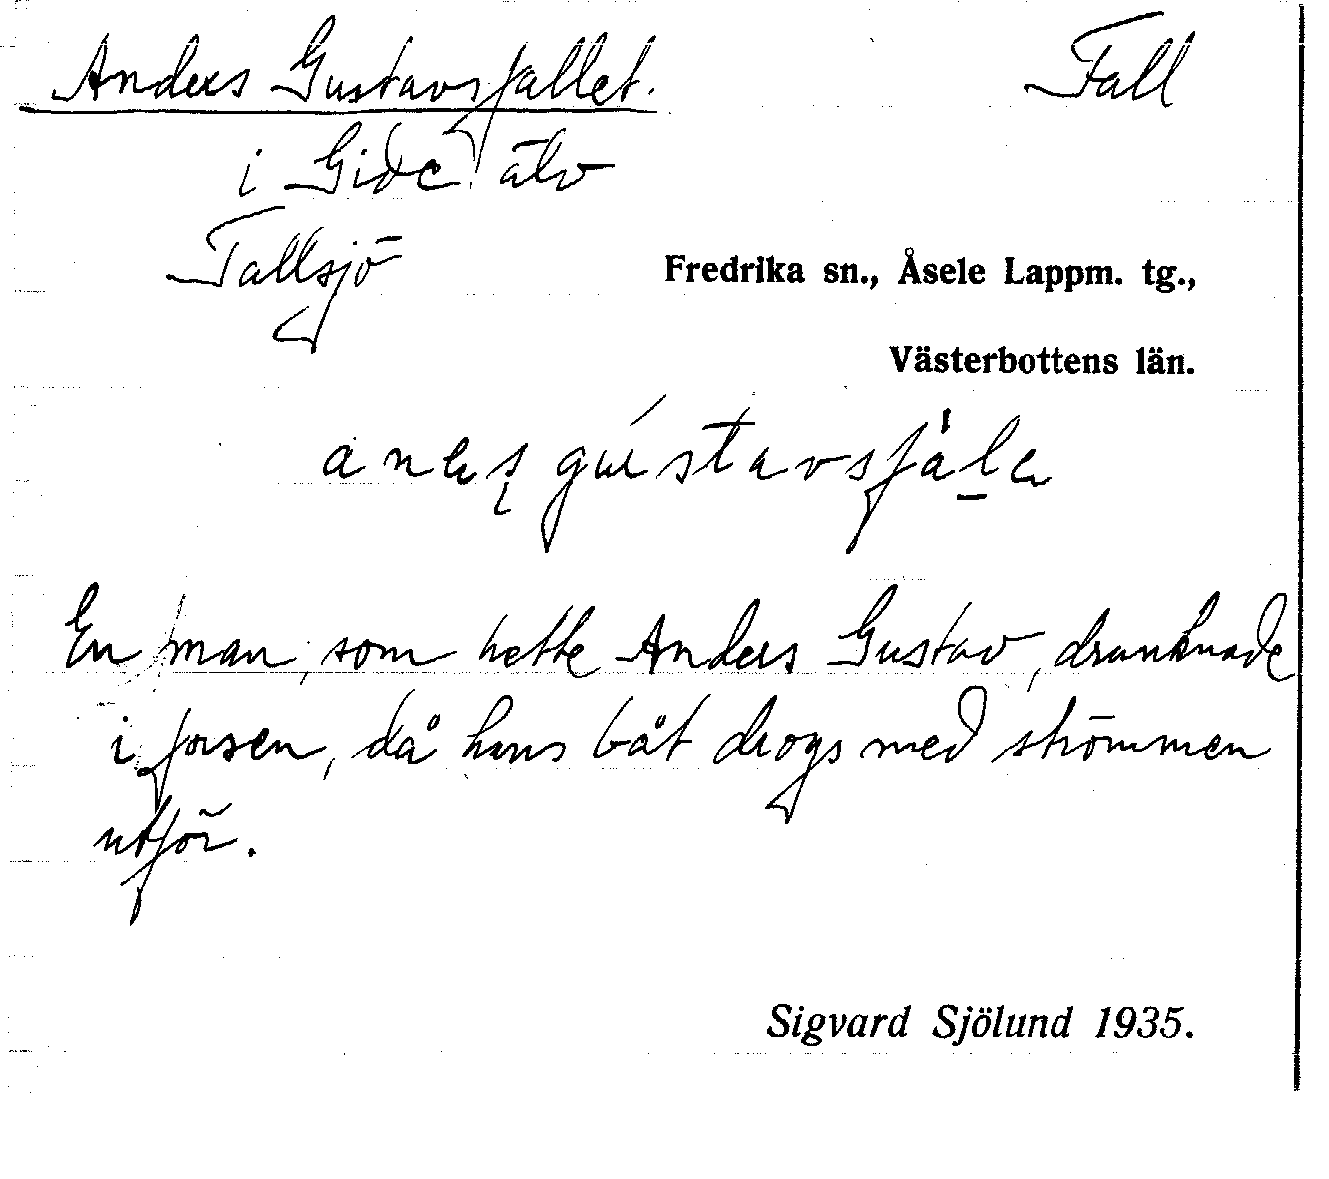 Anders Gustavsfallet. Fall
i Gide älv
Tallsjö Fredrika sn., Åsele Lappm. tg.,
Västerbottens län.
gústavsfàl̠
En man, som hette Anders Gustav, drunknade
i forsen, då hans båt drogs med strömmen
utför.
Sigvard Sjölund 1935.